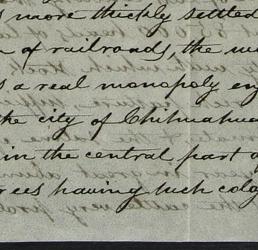 more thickly settled
& railroads, the
a real monopoly en
the city of Chihuahua
in the central part of
rees having such colo